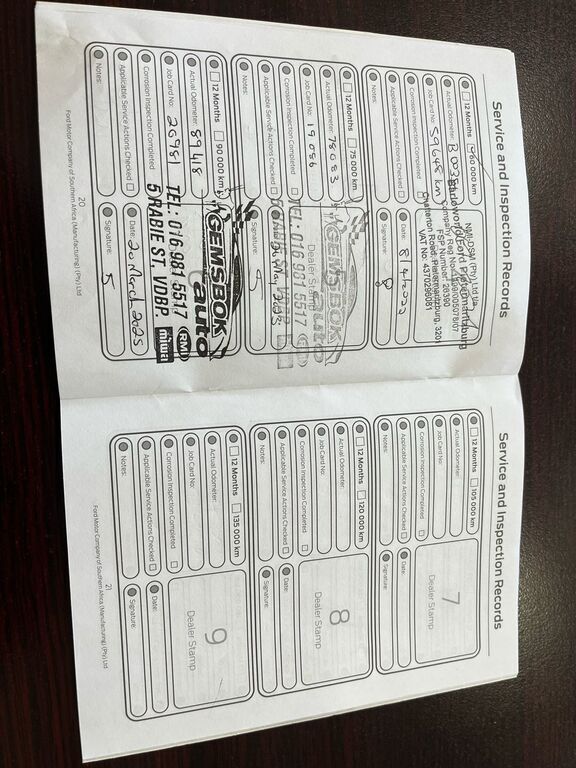 Service and Inspection Records
12 Months 60 000 km
Actual Odometer:
Job Card No: 59648 km
Corrosion Inspection Completed
Applicable Service Actions Checked
Notes:
NMI-DSM (Pty) Ltd t/a
Barloworld Ford Pietermaritzburg
Company Reg No.
FSP Number: 26390
Chatterton Road, Pietermaritzburg, 3201
VAT No: 4370296081
Date:
Signature:
12 Months 75 000 km
Actual Odometer: 78083
Job Card No: 19086
Corrosion Inspection Completed
Applicable Service Actions Checked
Notes:
Dealer Stamp
GEMSBOK
auto
TEL: 016 931 5517
5 RABIE ST, VDBP.
RMI
miwa
Signature:
12 Months 90 000 km
Actual Odometer: 89418
Job Card No: 20981
Corrosion Inspection Completed
Applicable Service Actions Checked
Notes:
GEMSBOK
auto
TEL: 016 931 5517
5 RABIE ST, VDBP.
RMI
miwa
Date: 20 March 2025
Signature:
20
Ford Motor Company of Southern Africa (Manufacturing) (Pty) Ltd
Service and Inspection Records
12 Months 105 000 km
Actual Odometer:
Job Card No:
Corrosion Inspection Completed
Applicable Service Actions Checked
Notes:
7
Dealer Stamp
Date:
Signature:
12 Months 120 000 km
Actual Odometer:
Job Card No:
Corrosion Inspection Completed
Applicable Service Actions Checked
Notes:
8
Dealer Stamp
Date:
Signature:
12 Months 135 000 km
Actual Odometer:
Job Card No:
Corrosion Inspection Completed
Applicable Service Actions Checked
Notes:
9
Dealer Stamp
Date:
Signature:
21
Ford Motor Company of Southern Africa (Manufacturing) (Pty) Ltd